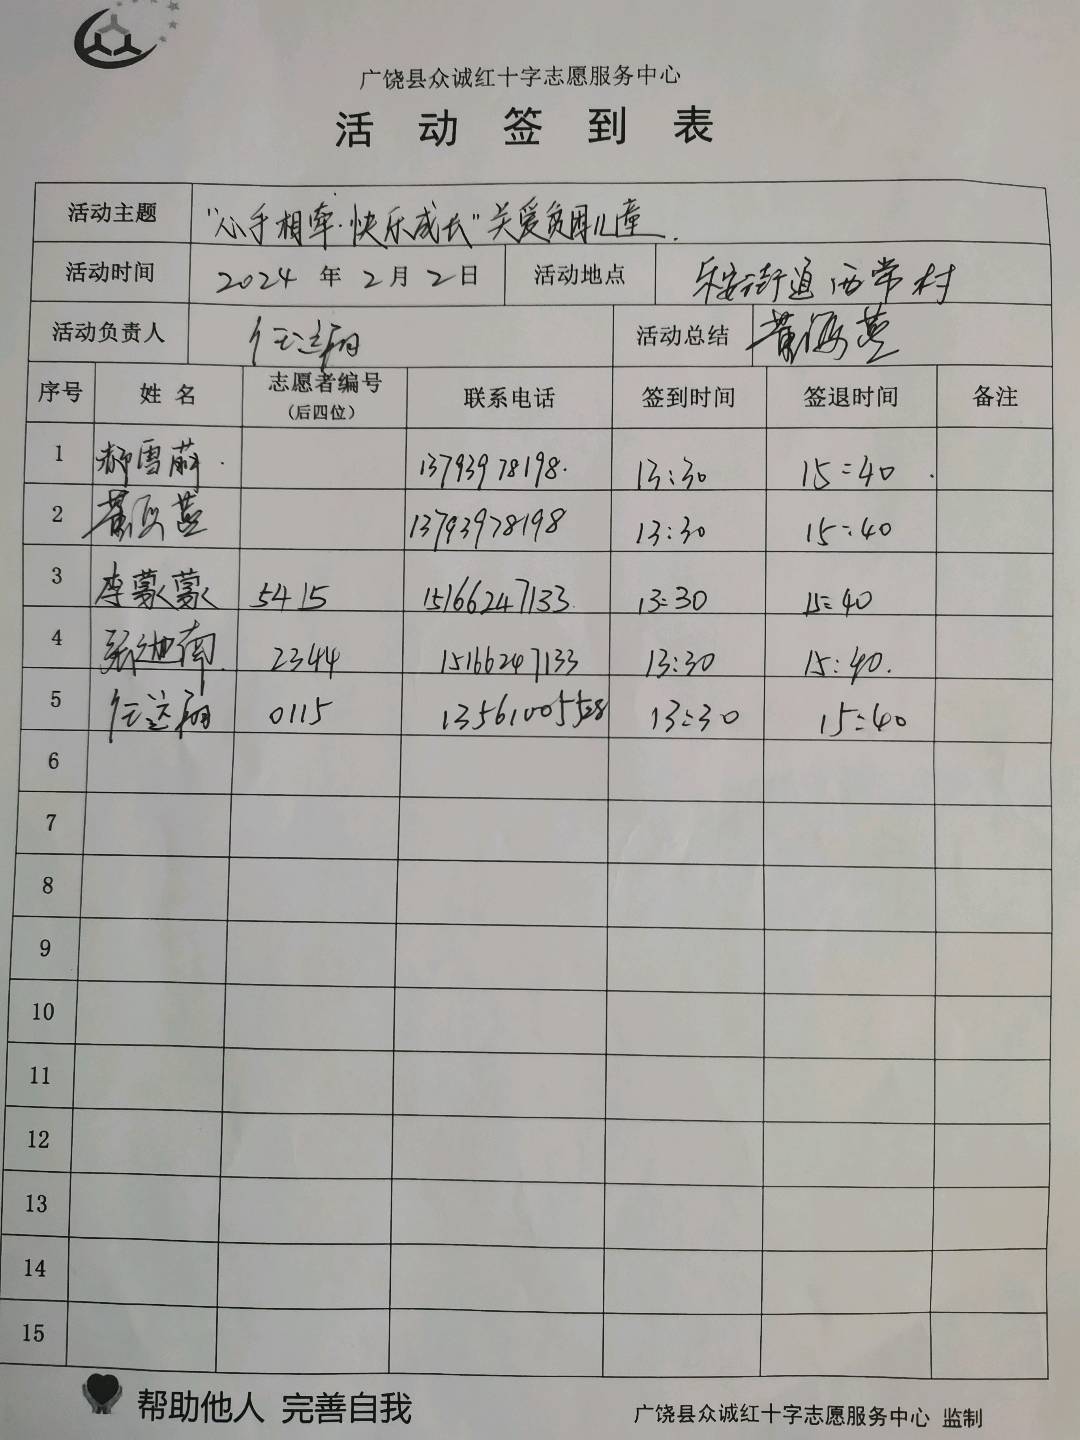 广饶县众诚红十字志愿服务中心
活动签到表
活动主题 “心手相牵·快乐成长”关爱贫困儿童.
活动时间 2024年2月2日 活动地点 乐安街道西常村
活动负责人 任达翔 活动总结 黄海燕
序号 姓名 志愿者编号（后四位） 联系电话 签到时间 签退时间 备注
1 郝雪 13793978198. 13:30 15:40
2 黄海燕 13793978198 13:30 15:40
3 李蒙蒙 5415 15166247133 13:30 15:40
4 南 2344 15166247133 13:30 15:40.
5 任达翔 0115 13561005528 13:30 15:40
6
7
8
9
10
11
12
13
14
15
帮助他人 完善自我
广饶县众诚红十字志愿服务中心 监制